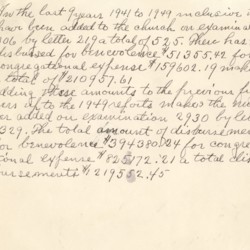 In the last 9 years 1941 to 1949 inclusive
have been added to the church on examina
106 by letter 219 a total of 525. There has
disbursed for benevolence $51355.42 for
congregational expense $159602.19 mak
total of $210957.61
Adding these amounts to the previous fi
ers up to the 1949 reports makes the nu
er added on examination 2930 by le
329. The total amount of disbursemen
for benevolence $394380.24 for congre
ational expense $825172.21 a total dis
ursements $1219552.45